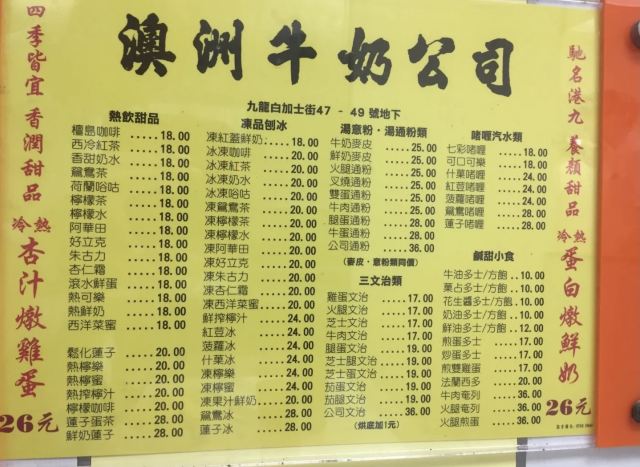 澳洲牛奶公司
九龍白加士街47 - 49 號地下
四季皆宜 香潤甜品
冷熱 杏汁燉雞蛋
26元
熱飲甜品
檀島咖啡 .....18.00
西冷紅茶 .....18.00
香甜奶水 .....18.00
鴛鴦茶 .....18.00
荷蘭哈咕 .....18.00
檸檬茶 .....18.00
檸檬水 .....18.00
阿華田 .....18.00
好立克 .....18.00
朱古力 .....18.00
杏仁霜 .....18.00
滾水鮮蛋 .....18.00
熱可樂 .....18.00
熱鮮奶 .....18.00
西洋菜蜜 .....18.00
鬆化蓮子 .....20.00
熱檸樂 .....20.00
熱檸蜜 .....20.00
熱搾檸汁 .....24.00
檸檬咖啡 .....20.00
蓮子蛋茶 .....28.00
鮮奶蓮子 .....28.00
凍品刨冰
凍紅蓋鮮奶 .....18.00
冰凍咖啡 .....20.00
冰凍紅茶 .....20.00
冰凍奶水 .....20.00
冰凍哈咕 .....20.00
凍鴛鴦茶 .....20.00
凍檸檬茶 .....20.00
凍檸檬水 .....20.00
凍阿華田 .....20.00
凍好立克 .....20.00
凍朱古力 .....20.00
凍杏仁霜 .....20.00
凍西洋菜蜜 .....20.00
鮮搾檸汁 .....24.00
紅荳冰 .....24.00
菠蘿冰 .....24.00
什菓冰 .....24.00
凍檸樂 .....24.00
凍檸蜜 .....24.00
凍果汁鮮奶 .....28.00
鴛鴦冰 .....28.00
蓮子冰 .....28.00
湯意粉・湯通粉類
牛奶麥皮 .....25.00
鮮奶麥皮 .....25.00
火腿通粉 .....25.00
叉燒通粉 .....25.00
雙蛋通粉 .....25.00
牛肉通粉 .....25.00
腿蛋通粉 .....28.00
牛蛋通粉 .....28.00
公司通粉 .....36.00
(麥皮・意粉類同價)
三文治類
雞蛋文治 .....17.00
火腿文治 .....17.00
芝士文治 .....17.00
牛肉文治 .....17.00
腿蛋文治 .....20.00
芝士腿文治 .....20.00
芝士蛋文治 .....20.00
茄蛋文治 .....20.00
茄腿文治 .....20.00
公司文治 .....36.00
(烘底加1元)
啫喱汽水類
七彩啫喱 .....18.00
可口可樂 .....18.00
什菓啫喱 .....24.00
紅荳啫喱 .....24.00
菠蘿啫喱 .....24.00
鴛鴦啫喱 .....28.00
蓮子啫喱 .....28.00
鹹甜小食
牛油多士/方飽 ..10.00
菓占多士/方飽 ..10.00
花生醬多士/方飽 ..10.00
奶油多士/方飽 ..10.00
鮮油多士/方飽 ..12.00
煎蛋多士 .....17.00
炒蛋多士 .....17.00
煎雙雞蛋 .....17.00
法蘭西多 .....20.00
牛肉奄列 .....36.00
火腿奄列 .....36.00
火腿煎蛋 .....36.00
馳名港九 養顏甜品
冷熱 蛋白燉鮮奶
26元